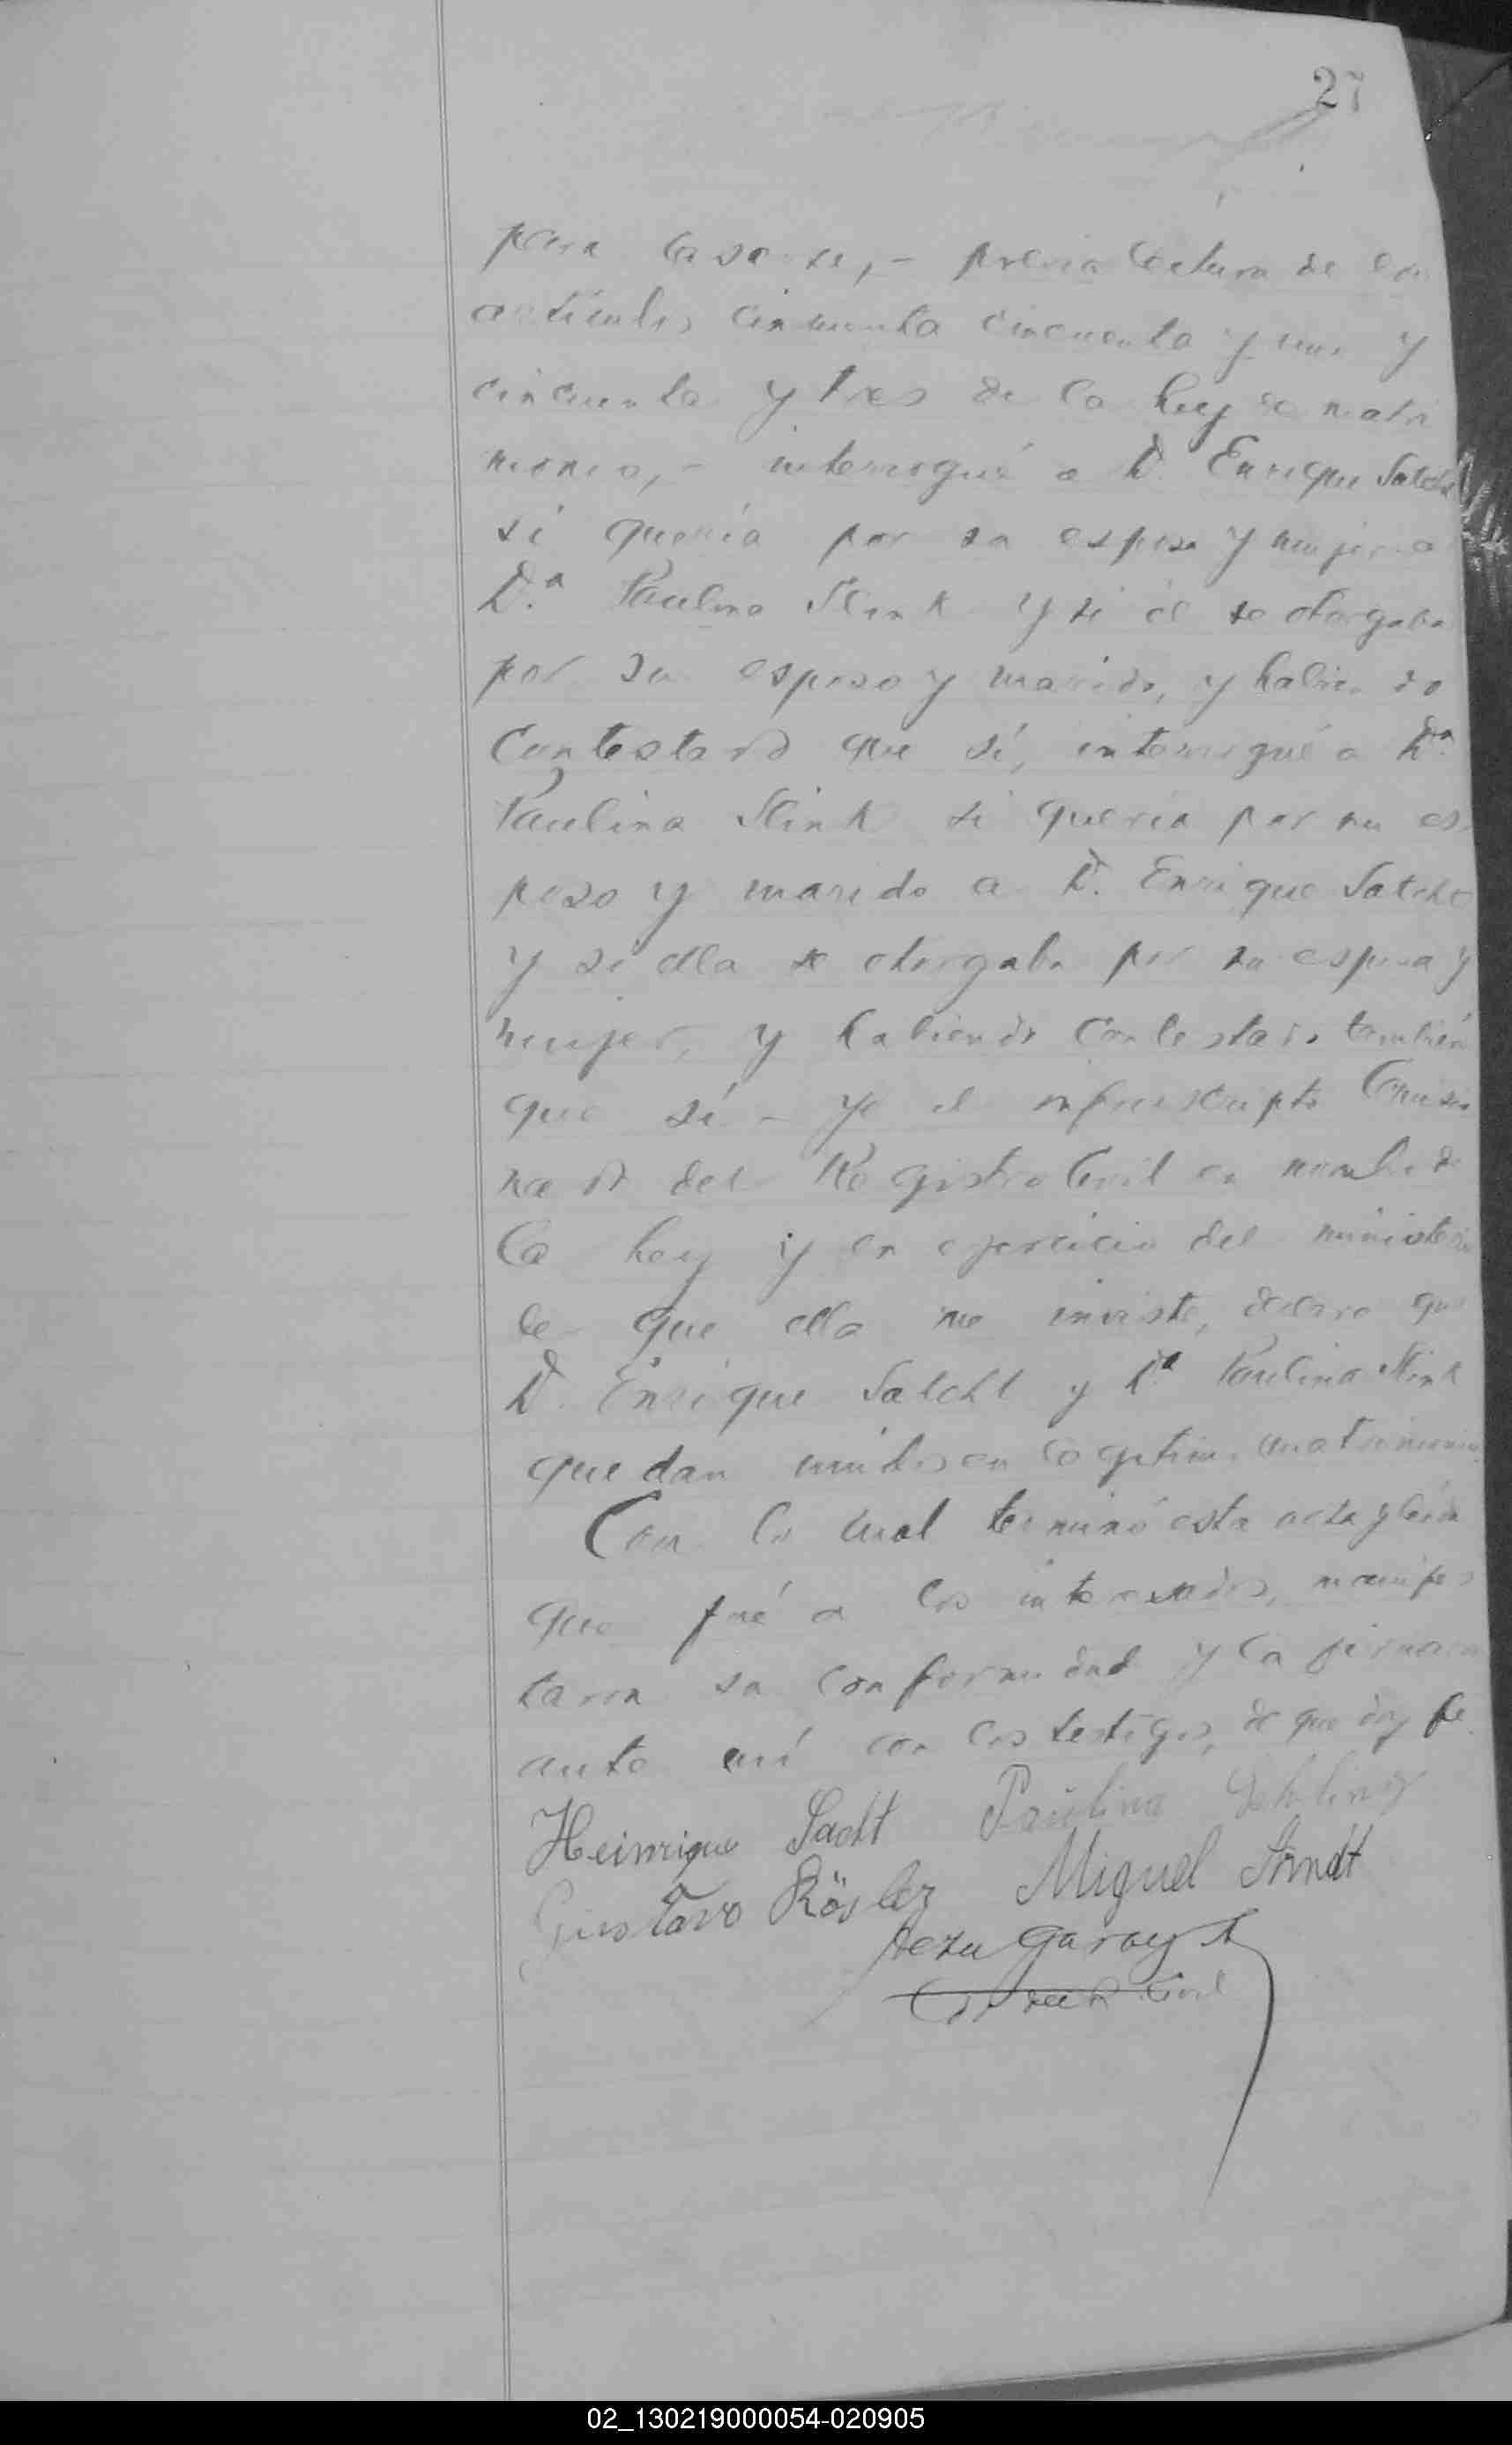 27
para casarse, - previa lectura de los
artículos cincuenta cincuenta y uno y
cincuenta y tres de la Ley de matri
monio, - interrogué a D. Enrique Satcht
si quería por su esposa y mujer a
D.ª Paulina Slink y si él se otorgaba
por su esposo y marido, y habiendo
contestado que sí, interrogué a D.ª
Paulina Slink si quería por su es
poso y marido a D. Enrique Satcht
y si ella se otorgaba por su esposa y
mujer, y habiendo contestado también
que sí - yo el infrascripto Comisio
nado del Registro Civil en nombre de
la Ley y en ejercicio del ministerio
de que ella me inviste, declaro que
D. Enrique Satcht y D.ª Paulina Slink
quedan unidos en legítimo matrimonio.
Con lo cual terminó esta acta y leída
que fué a los interesados, manifes
taron su conformidad y la firmaron
ante mí con los testigos, de que doy fe.
Heinrique Sacht Paulina Schling
Gustavo Rösler Miguel Arndt
Garay
Civil
02_130219000054-020905